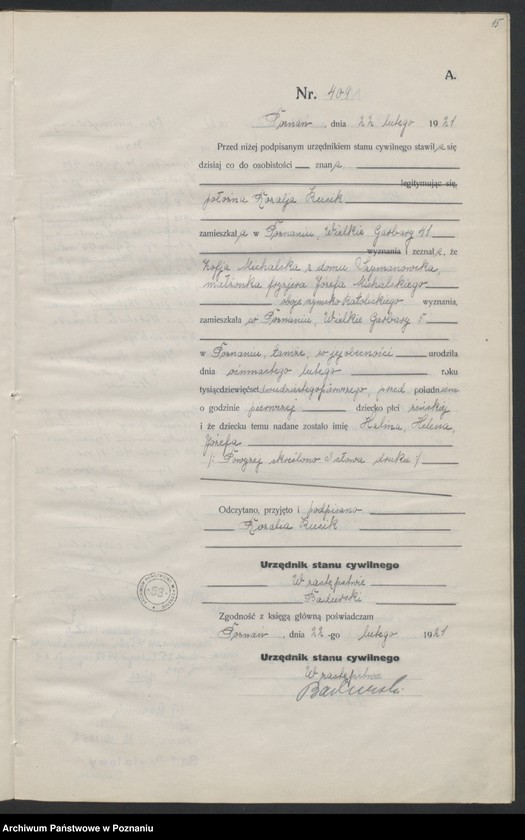 15
A.
Nr. 409
Poznań, dnia 22 lutego 1921
Przed niżej podpisanym urzędnikiem stanu cywilnego stawiła się
dzisiaj co do osobistości znana
legitymując się,
położna Rozalja Kucik
zamieszkała w Poznaniu, Wielkie Garbary 41
wyznania i zeznała, że
Zofja Michalska z domu Szymanowska,
małżonka fryzjera Józefa Michalskiego
oboje rzymsko katolickiego wyznania,
zamieszkała w Poznaniu, Wielkie Garbary 5
w Poznaniu, tamże, w jej obecności urodziła
dnia ośmnastego lutego roku
tysiącdziewięćset dwudziestegopierwszego, przed południem
o godzinie pierwszej dziecko płci żeńskiej
i że dziecku temu nadane zostało imię Halina, Helena,
Józefa
/: Powyżej skreślono 3 słowa druku :/
Odczytano, przyjęto i podpisano
Rozalia Kucik
Urzędnik stanu cywilnego
W zastępstwie
Zgodność z księgą główną poświadczam
Poznań, dnia 22-go lutego 1921
Urzędnik stanu cywilnego
W zastępstwie
Archiwum Państwowe w Poznaniu